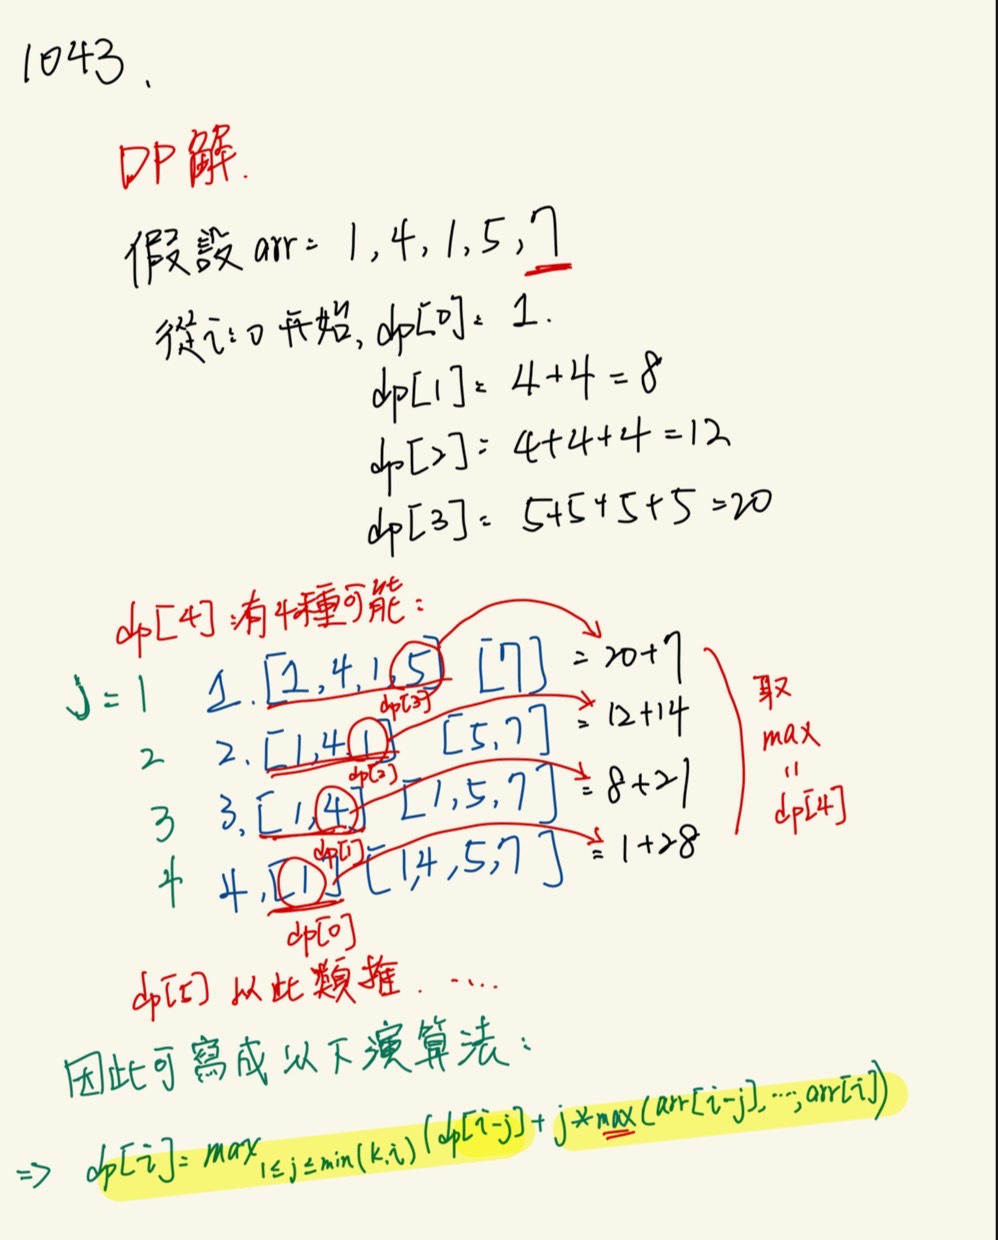 1043.
DP解.
假設 arr = 1, 4, 1, 5, 7
從 i = 0 开始, dp[0] = 1.
dp[1] = 4+4 = 8
dp[2] = 4+4+4 = 12
dp[3] = 5+5+5+5 = 20
dp[4] 有4種可能：
j = 1 1. [1, 4, 1, 5] [7] = 20+7
dp[3]
2 2. [1, 4, 1] [5, 7] = 12+14
dp[2]
3 3. [1, 4] [1, 5, 7] = 8+21
dp[1]
4 4. [1] [1, 4, 5, 7] = 1+28
dp[0]
取
max
=
dp[4]
dp[5] 以此類推. ....
因此可寫成以下演算法：
=> dp[i] = max 1≤j≤min(k,i) (dp[i-j] + j*max(arr[i-j], ..., arr[i])